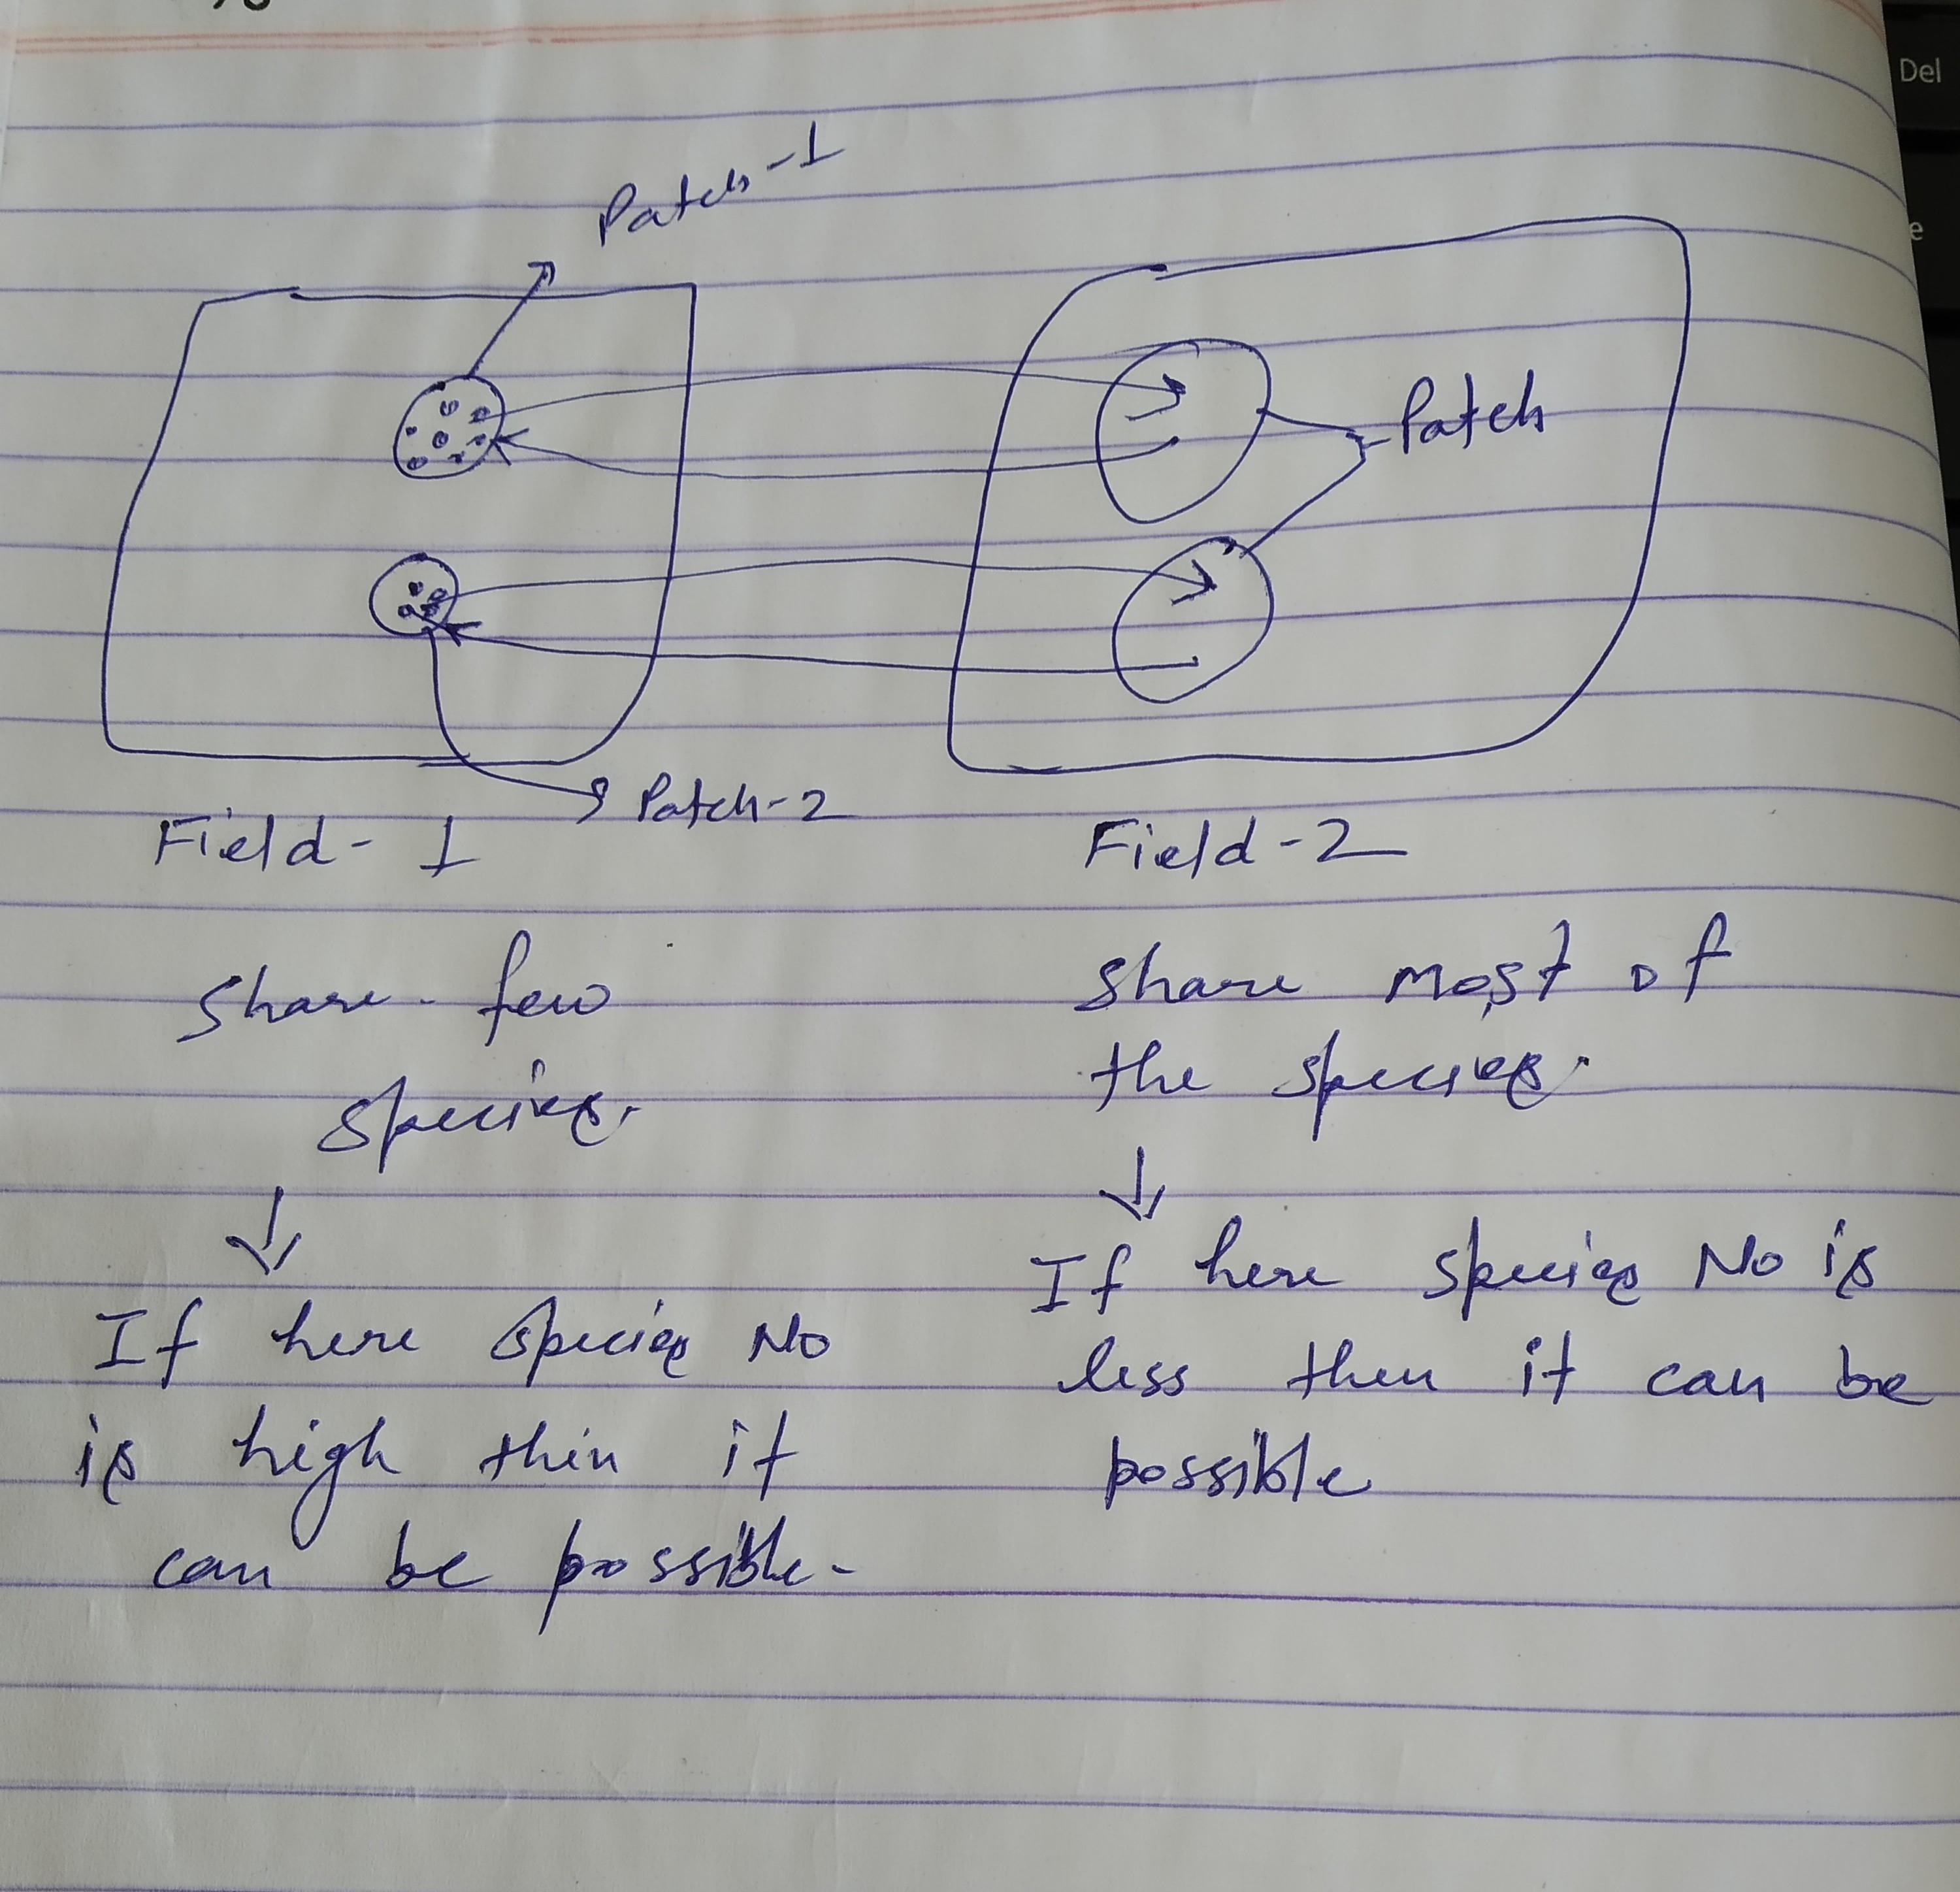 Patch-1
Patch
Patch-2
Field-1
Field-2
Share few
species.
Share most of
the species.
If here species No
is high thin it
can be possible-
If here species No is
less then it can be
possible
Del
e